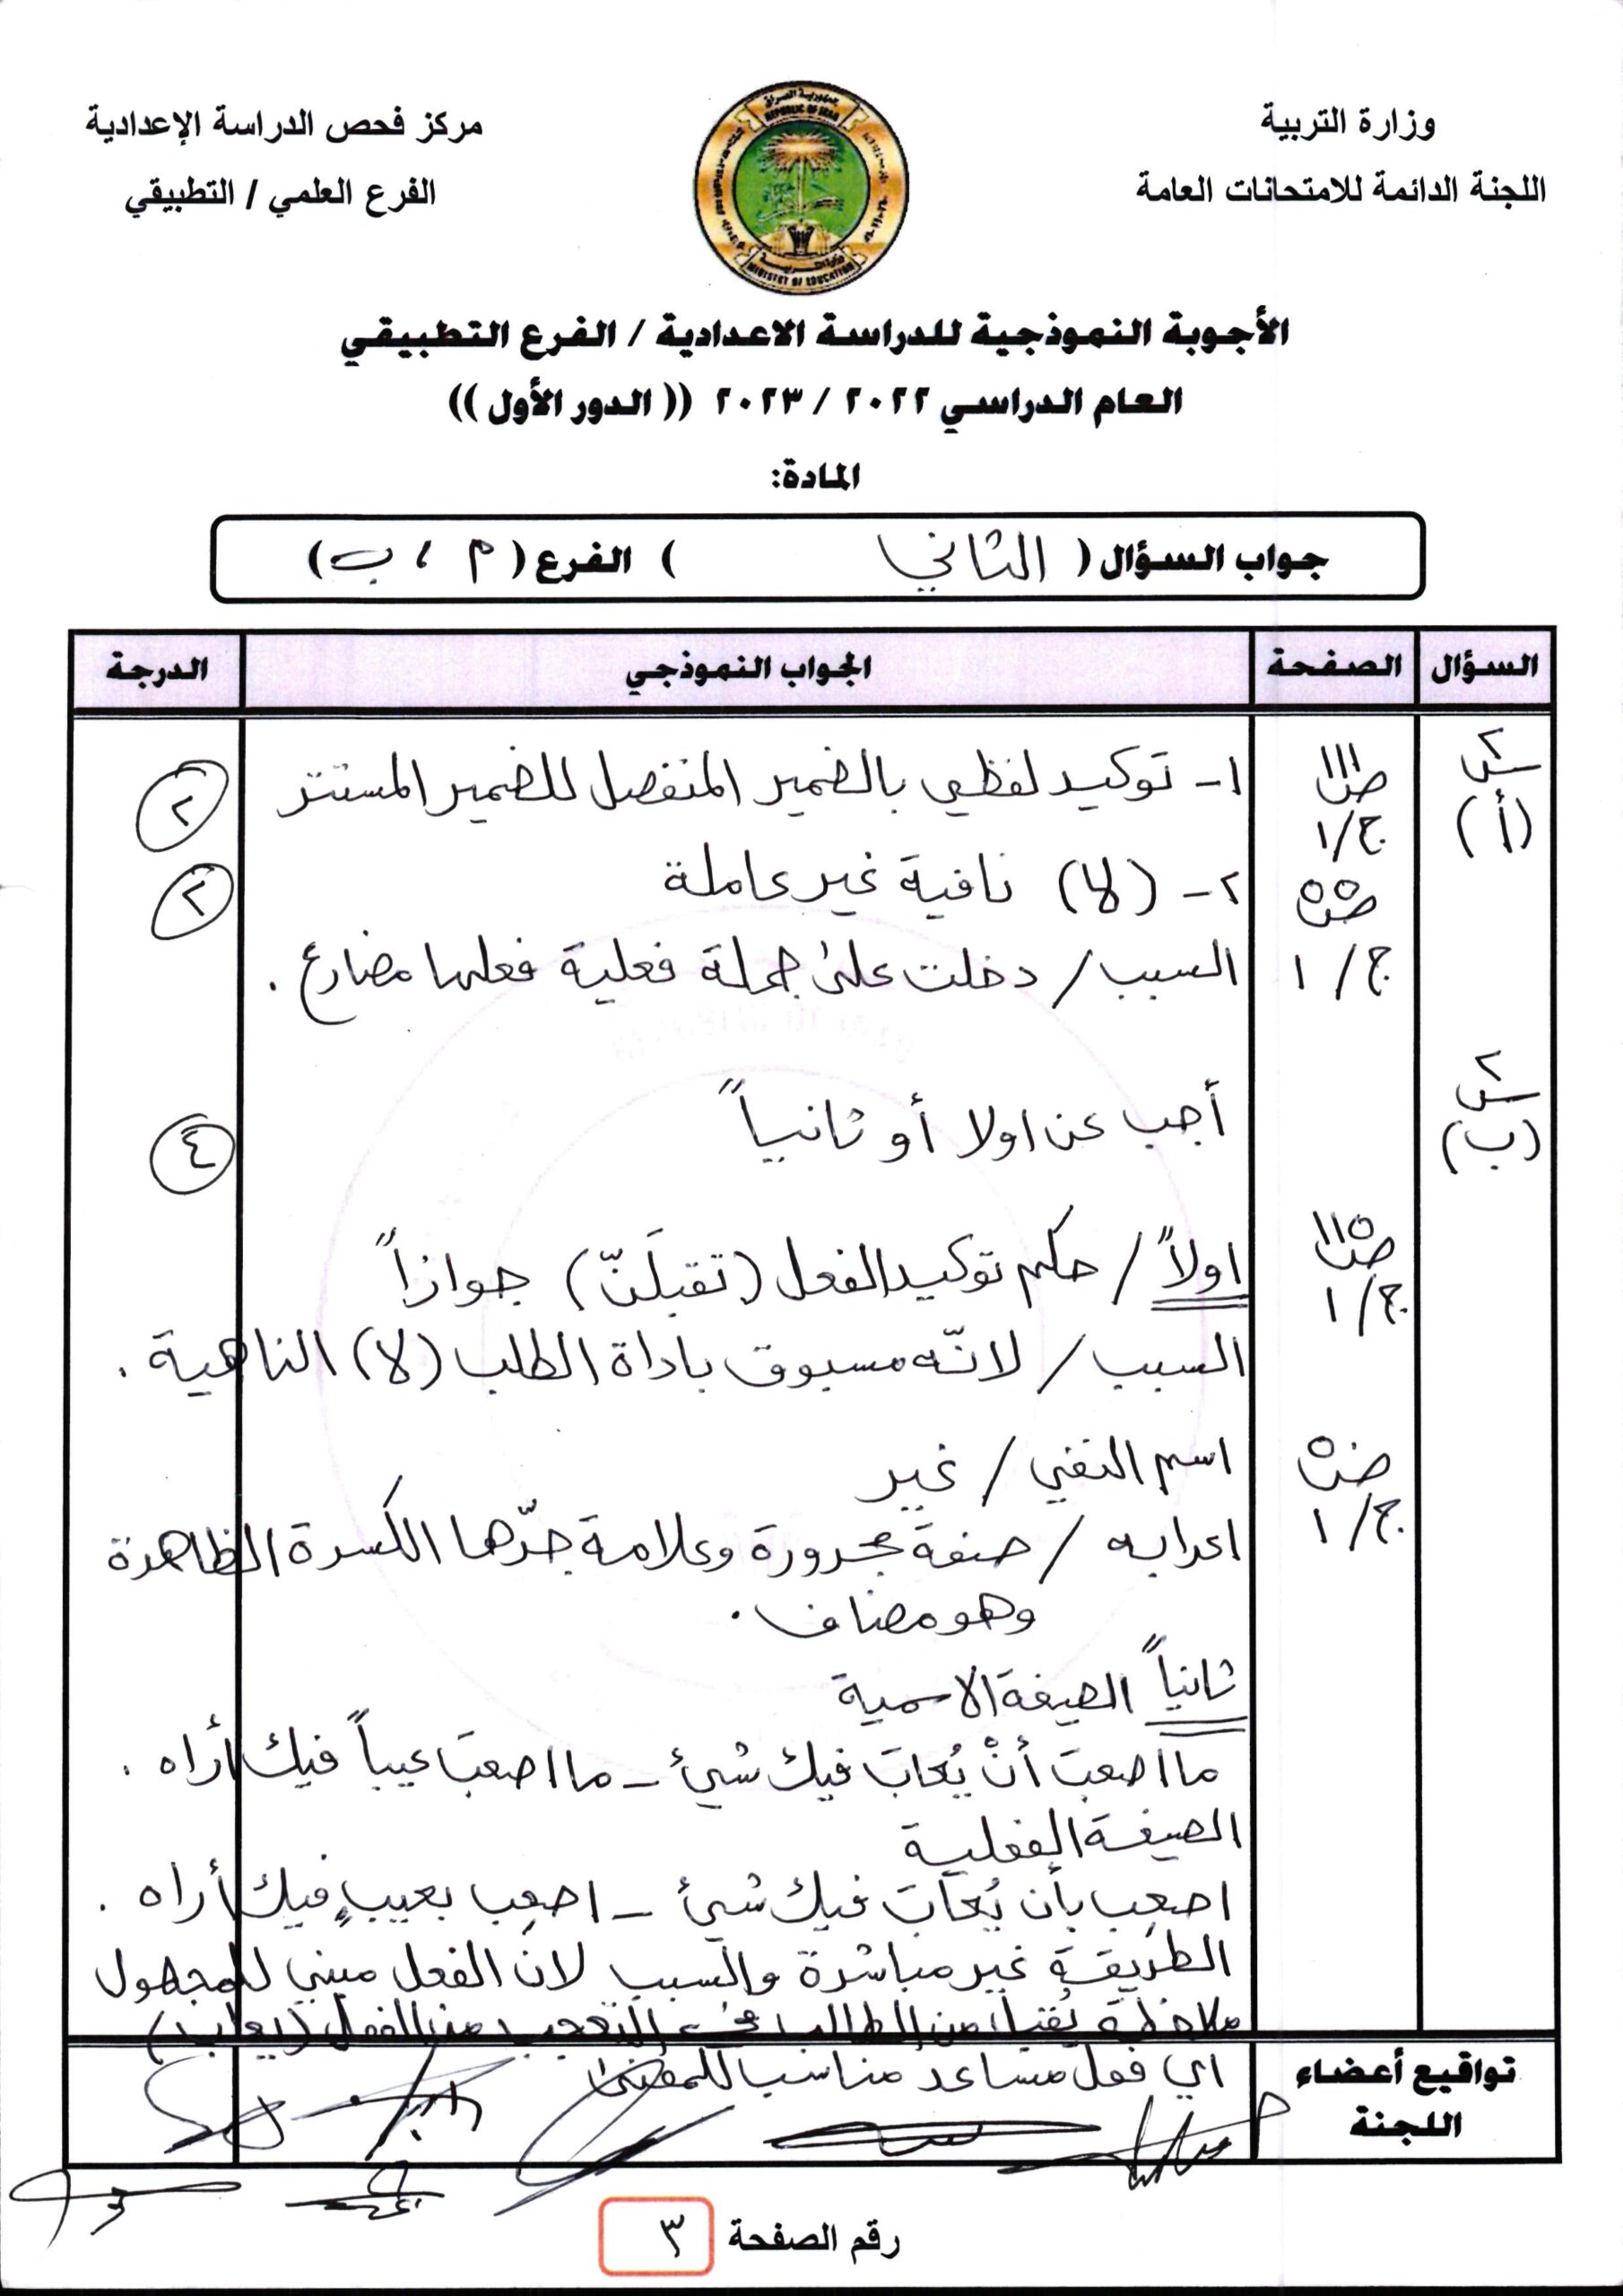 وزارة التربية
اللجنة الدائمة للامتحانات العامة
مركز فحص الدراسة الإعدادية
الفرع العلمي / التطبيقي
جمهورية العراق
REPUBLIC OF IRAQ
MINISTRY OF EDUCATION
الأجوبة النموذجية للدراسة الاعدادية / الفرع التطبيقي
العام الدراسي ٢٠٢٢ / ٢٠٢٣ (( الدور الأول ))
المادة:
جواب السؤال ( الثاني ) الفرع ( م ، ب )
السؤال الصفحة الجواب النموذجي الدرجة
س٢ (أ) ص١١١ ج/١ ١- توكيد لفظي بالضمير المنفصل للضمير المستتر ٢
ص٥٥ ج/١ ٢- (لا) نافية غير عاملة ٢
السبب / دخلت على جملة فعلية فعلها مضارع .
س٢ (ب) أجب عن اولا أو ثانياً ٤
ص١١٥ ج/١ اولاً / حكم توكيد الفعل (تقبلَنّ) جوازاً
السبب / لانّه مسبوق باداة الطلب (لا) الناهية .
ص٥٠ ج/١ اسم النفي / غير
اعرابه / صفة مجرورة وعلامة جرّها الكسرة الظاهرة
وهو مضاف .
ثانياً الصيغة الاسمية
ما اصعبَ أنْ يُعابَ فيك شيئ – ما اصعبَ عيباً فيك أراه .
الصيغة الفعلية
اصعِب بأن يُعابَ فيك شيئ – اصعِب بعيبٍ فيك أراه .
الطريقة غير مباشرة والسبب لان الفعل مبني للمجهول
ملاحظة يُقبل من الطالب في التعجب من الفعل (يعاب)
اي فعل مساعد مناسب للمعنى
تواقيع أعضاء
اللجنة
رقم الصفحة ٣